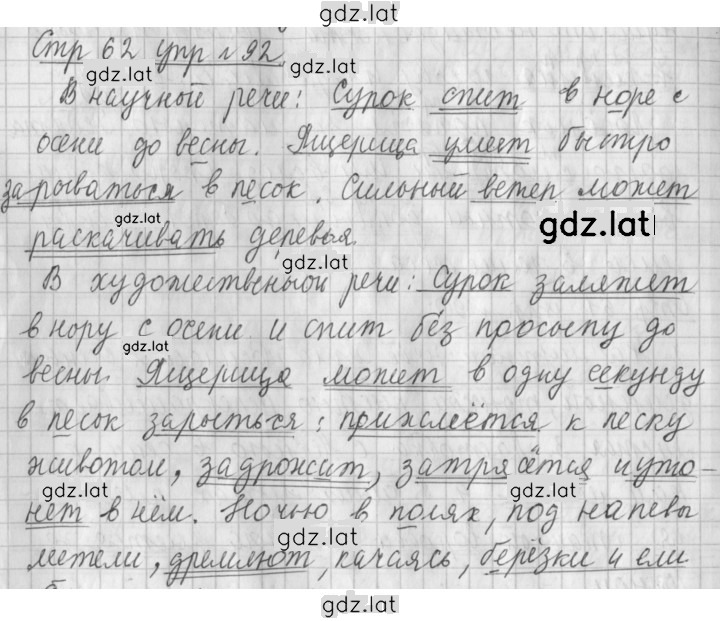 gdz.lat
Стр 62 упр № 92
gdz.lat
gdz.lat
В научной речи: Сурок спит в норе с
осени до весны. Ящерица умеет быстро
зарываться в песок. Сильный ветер может
gdz.lat
gdz.lat
раскачивать деревья.
gdz.lat
В художественной речи: Сурок заляжет
в нору с осени и спит без просыпу до
gdz.lat
весны. Ящерица может в одну секунду
в песок зарыться: прижмётся к песку
животом, задрожит, затрясётся и уто-
gdz.lat
gdz.lat
нет в нём. Ночью в полях, под напевы
gdz.lat
метели, дремлют, качаясь, берёзки и ели.
gdz.lat